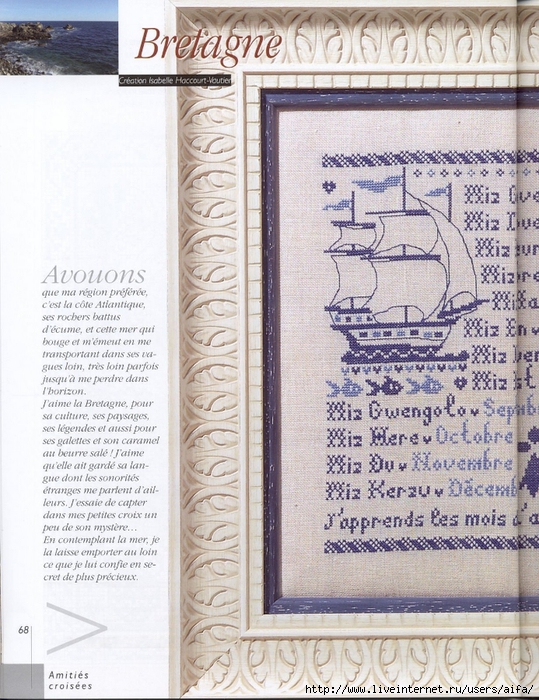 Bretagne
Création Isabelle Haccourt-Vautier
Avouons
que ma région préférée,
c'est la côte Atlantique,
ses rochers battus
d'écume, et cette mer qui
bouge et m'émeut en me
transportant dans ses va-
gues loin, très loin parfois
jusqu'à me perdre dans
l'horizon.
J'aime la Bretagne, pour
sa culture, ses paysages,
ses légendes et aussi pour
ses galettes et son caramel
au beurre salé ! J'aime
qu'elle ait gardé sa lan-
gue dont les sonorités
étranges me parlent d'ail-
leurs. J'essaie de capter
dans mes petites croix un
peu de son mystère...
En contemplant la mer, je
la laisse emporter au loin
ce que je lui confie en se-
cret de plus précieux.
68
Amitiés
croisées
Miz
Miz
Miz
Miz
Miz
Miz
Miz Gwengolo
Miz Here Octobre
Miz Du Novembre
Miz Kerzu Décemb
J'apprends les mois d
http://www.liveinternet.ru/users/aifa/